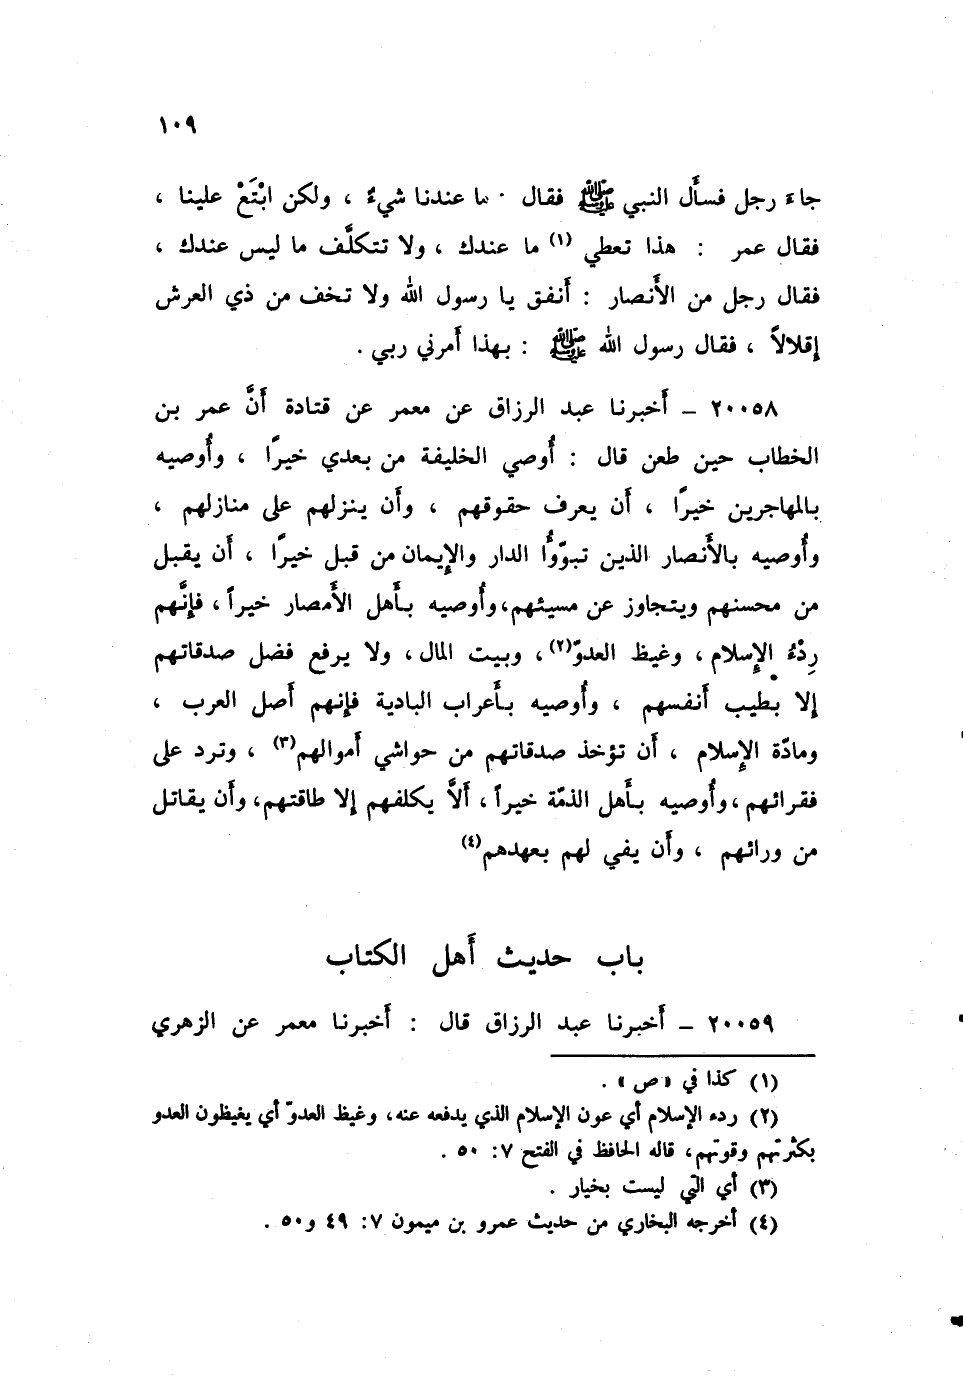 ١٠٩
جاءَ رجل فسأَل النبي ﷺ فقال : ما عندنا شيءٌ ، ولكن ابْتَعْ علينا ،
فقال عمر : هذا تعطي (١) ما عندك ، ولا تتكلَّف ما ليس عندك ،
فقال رجل من الأَنصار : أَنفق يا رسول الله ولا تخف من ذي العرش
إقلالاً ، فقال رسول الله ﷺ : بهذا أَمرني ربي .
٢٠٠٥٨ – أَخبرنا عبد الرزاق عن معمر عن قتادة أَنَّ عمر بن
الخطاب حين طعن قال : أُوصي الخليفة من بعدي خيرًا ، وأُوصيه
بالمهاجرين خيرًا ، أَن يعرف حقوقهم ، وأَن ينزلهم على منازلهم ،
وأُوصيه بالأَنصار الذين تبوّوُا الدار والإيمان من قبل خيرًا ، أَن يقبل
من محسنهم ويتجاوز عن مسيئهم، وأُوصيه بأَهل الأَمصار خيراً ، فإنَّهم
رِدْءُ الإِسلام ، وغيظ العدوّ(٢) ، وبيت المال ، ولا يرفع فضل صدقاتهم
إلا بطيب أَنفسهم ، وأُوصيه بأَعراب البادية فإنهم أَصل العرب ،
ومادّة الإِسلام ، أَن تؤخذ صدقاتهم من حواشي أَموالهم(٣) ، وترد على
فقرائهم ، وأُوصيه بأَهل الذمّة خيراً ، أَلاَّ يكلفهم إلا طاقتهم، وأَن يقاتل
من ورائهم ، وأَن يفي لهم بعهدهم(٤)
باب حديث أَهل الكتاب
٢٠٠٥٩ – أَخبرنا عبد الرزاق قال : أَخبرنا معمر عن الزهري
(١) كذا في «ص» .
(٢) ردء الإسلام أي عون الإسلام الذي يدفعه عنه، وغيظ العدوّ أي يغيظون العدو
بكثرتهم وقوتهم، قاله الحافظ في الفتح ٧: ٥٠ .
(٣) أي التي ليست بخيار .
(٤) أخرجه البخاري من حديث عمرو بن ميمون ٧: ٤٩ و٥٠ .